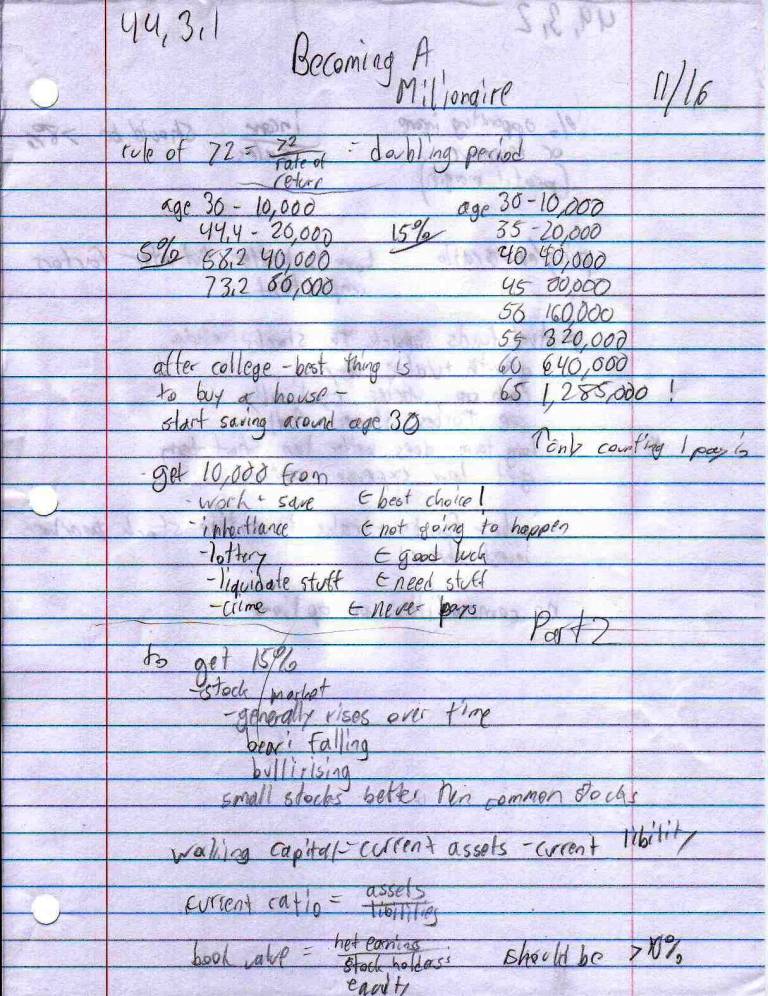 44,3,1
Becoming A
Millionaire
11/16
rule of 72 = 72 / rate of return = doubling period
age 30 - 10,000
44,4 - 20,000
5% 58,2 40,000
73,2 80,000
age 30 - 10,000
15% 35 - 20,000
40 40,000
45 80,000
50 160,000
55 320,000
60 640,000
65 1,285,000 !
after college - best thing is
to buy a house -
start saving around age 30
↑ only counting 1
- get 10,000 from
- work + save ← best choice!
- inheritance ← not going to happen
- lottery ← good luck
- liquidate stuff ← need stuff
- crime ← never pays
Part 2
to get 15%
- stock market
- generally rises over time
bear: falling
bull: rising
small stocks better than common stocks
capital = current assets - current libility
current ratio = assets / libilities
book value = net earning / stock holders equity should be > 10%